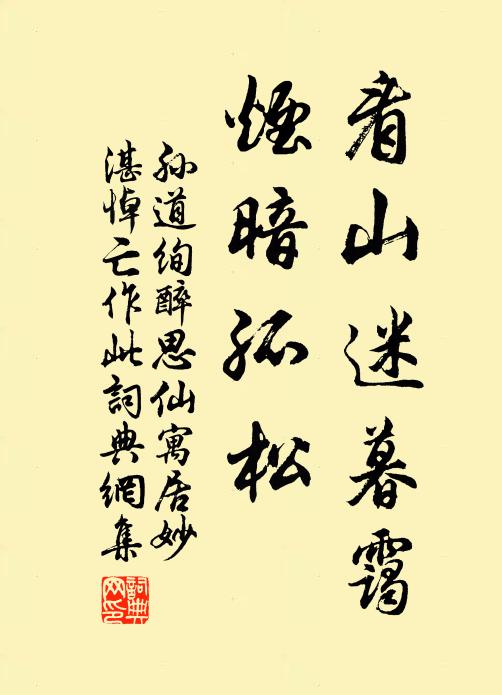 看山迷暮靄
煙暗孤松
孙道绚醉思仙寓居妙
湛悼亡作此詞典網集
詞典网印